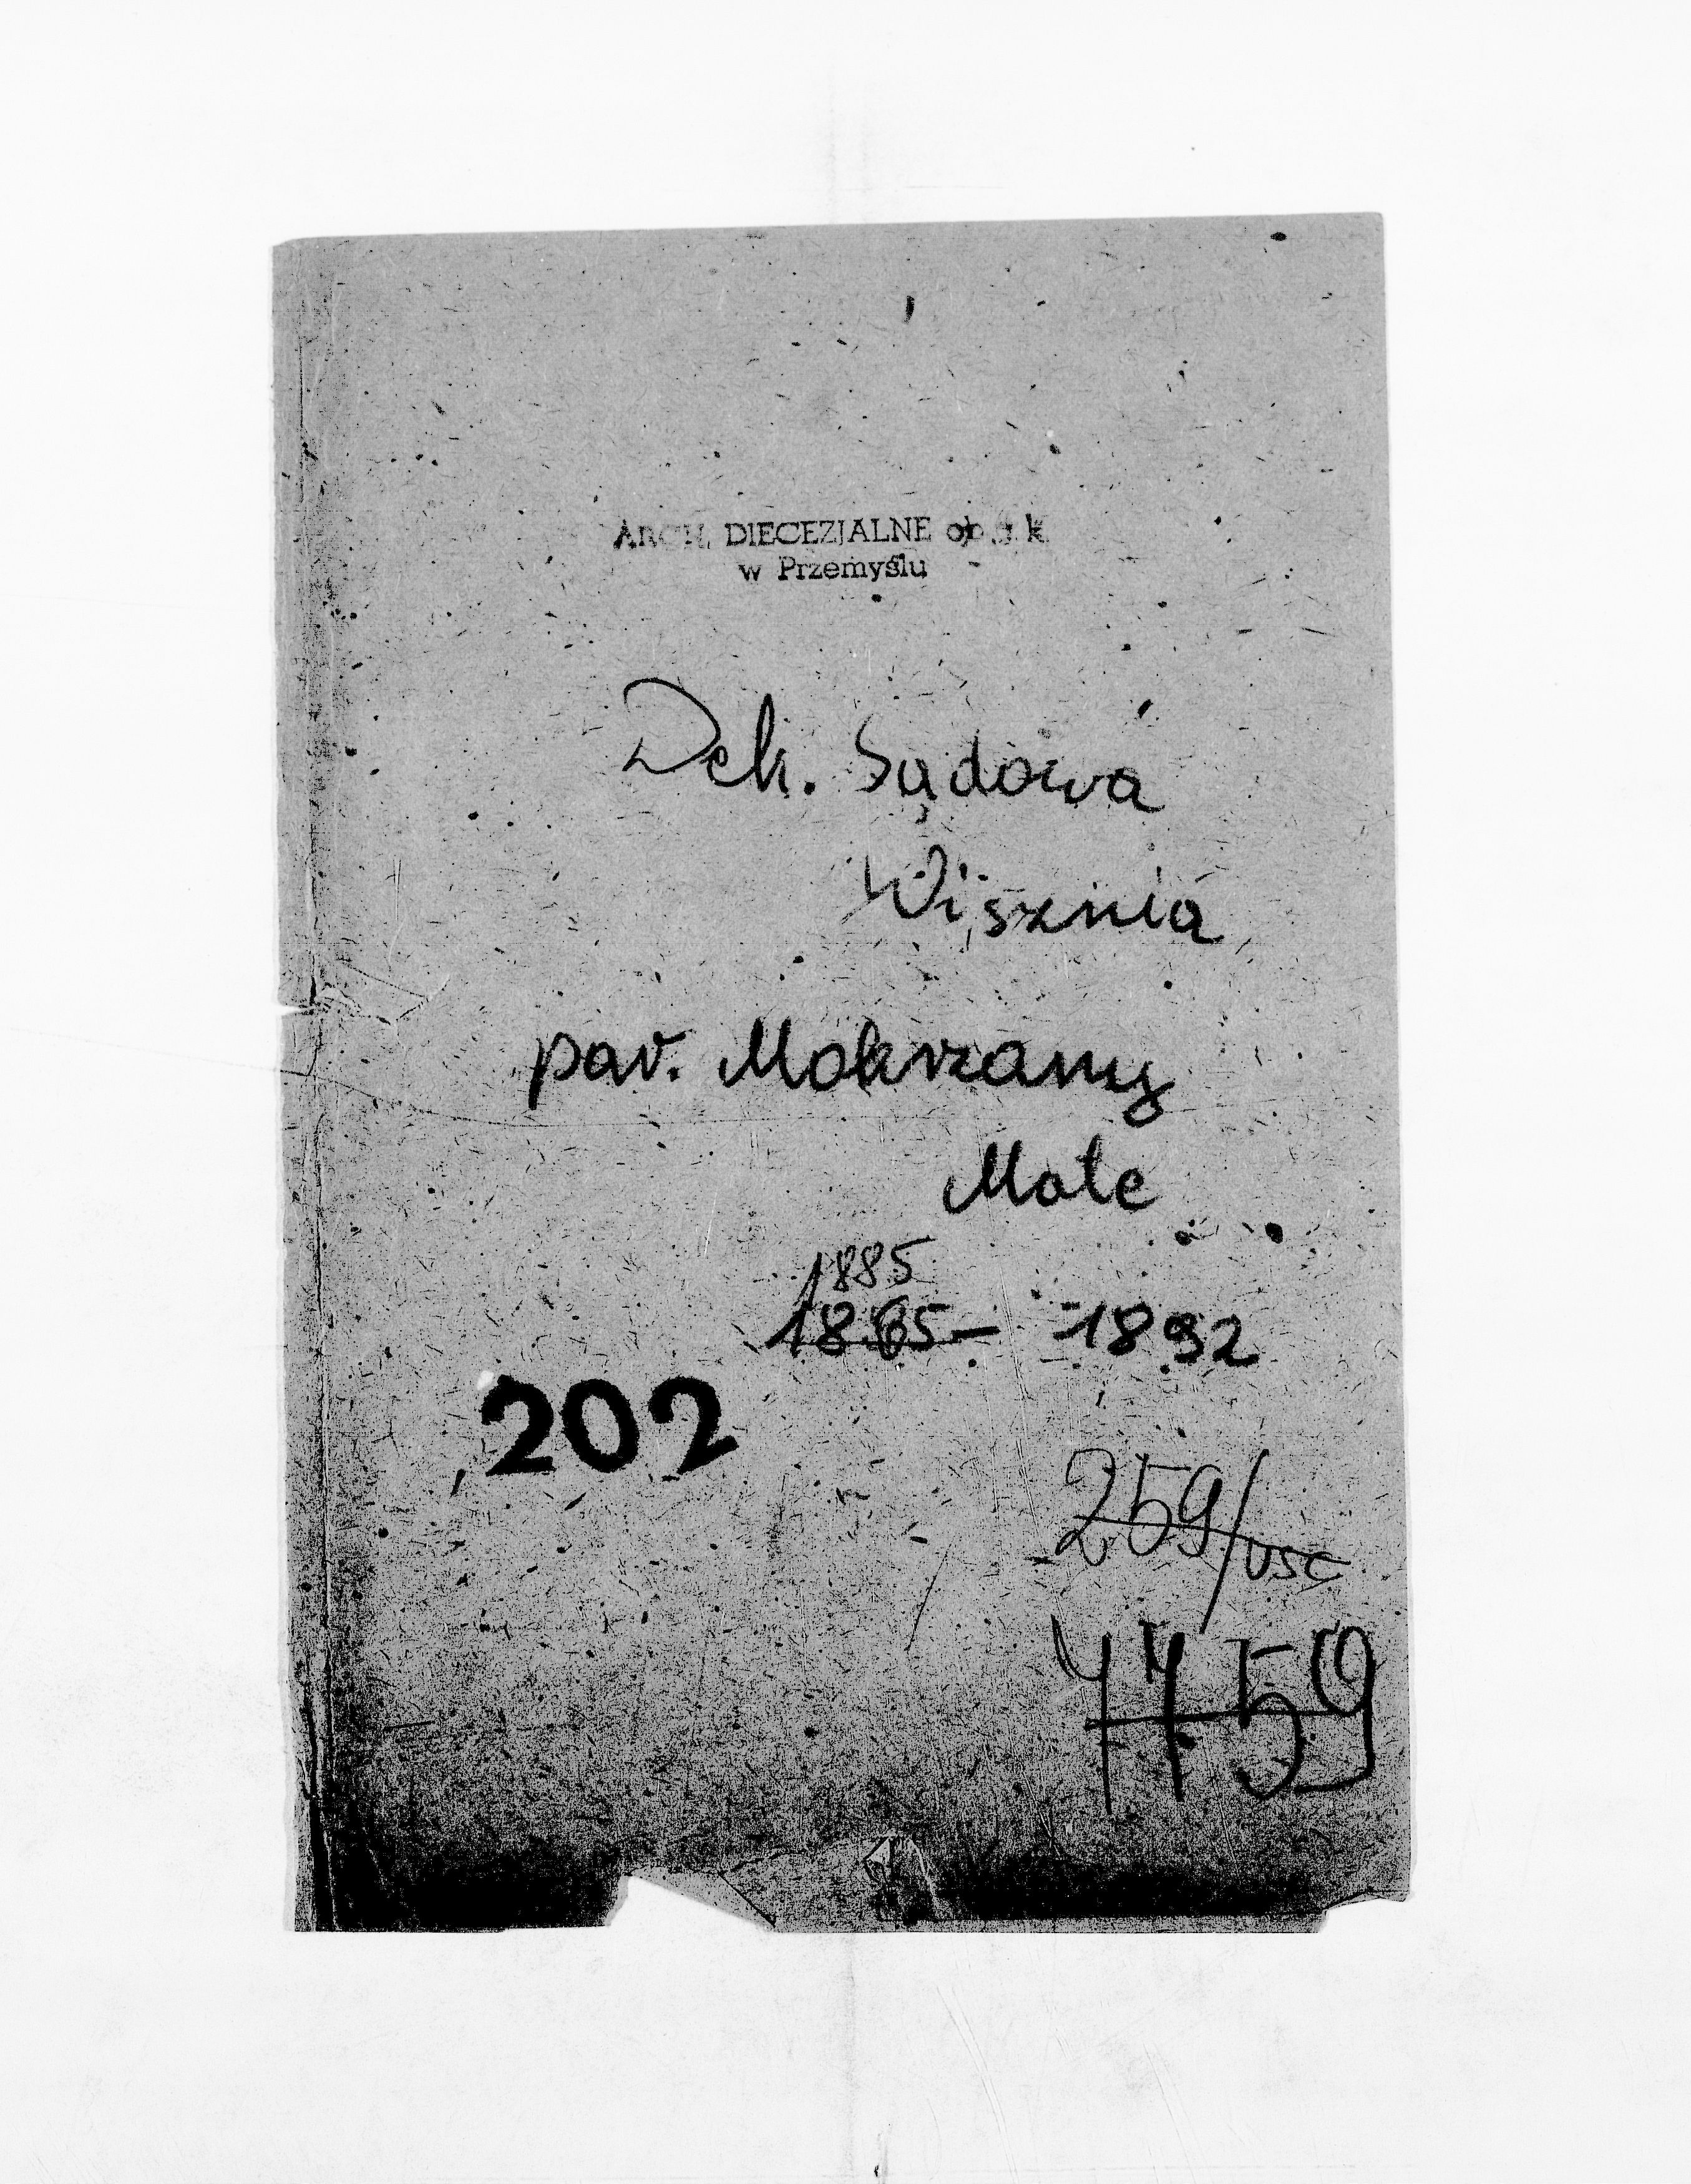 ARCH. DIECEZJALNE ob. g. k.
w Przemyślu
Dek. Sądowa
Wisznia
par. Mokrzany
Małe
1885
1865 - 1892
202
259/USC
4459